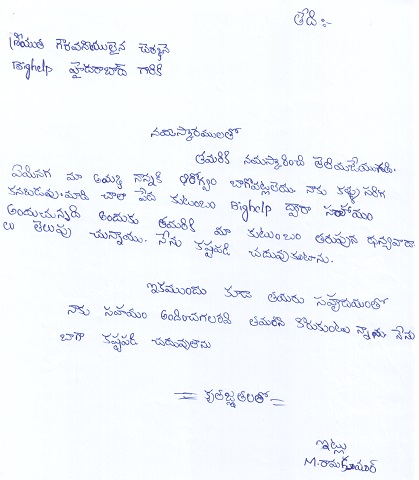 తేది:-
శ్రీయుత గౌరవనీయులైన చైర్మన్
Bighelp హైదరాబాద్ గారికి
నమస్కారములతో
తమరికి నమస్కారించి తెలియజేయునది.
ఏమనగ మా అమ్మకి నాన్నకి ఆరోగ్యం బాగోవట్లలేదు. నాకు కళ్ళు సరిగ
కనబడువు. మాది చాలా పేద కుటుంబం Bighelp ద్వారా సహాయం
అందుచున్నది అందుకు తమరికి మా కుటుంబం తరుపున ధన్యవాదా
లు తెలుపు చున్నాము. నేను కష్టపడి చదువుకుంటాను.
ఇకముందు కూడా తమరు సహృదయంతో
నాకు సహాయం అందించగలరని తమరిని కోరుకుంటు న్నాను నేను
బాగా కష్టపడి చదువుతాను
= కృతజ్ఞతలతో =
ఇట్లు
M. రామకుమార్